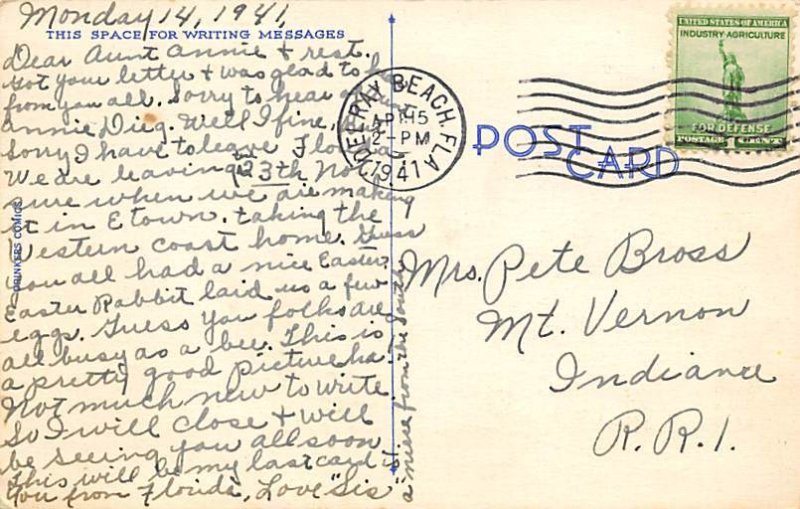 Monday 14, 1941,
THIS SPACE FOR WRITING MESSAGES
Dear Aunt Annie & rest.
Got your letter & was glad to
from you all. Sorry to hear
Annie Dieg. Well I fine,
Sorry I have to leave
We are leaving the 23th Not
sure when we are making
it in Etown. taking the
Western coast home. Guess
you all had a nice Easter.
Easter Rabbit laid us a few
eggs. Guess you folks are
all busy as a bee. This is
a pretty good picture ha
Not much new to write
So I will close & will
be seeing you all soon
This will be my last card to
you from Florida, Love "Sis"
a "miss from the South
DRINKERS COMICS
DELRAY BEACH, FLA.
APR 15
2-PM
1941
POST CARD
UNITED STATES OF AMERICA
INDUSTRY AGRICULTURE
FOR DEFENSE
POSTAGE 1 CENT
Mrs. Pete Bross
Mt. Vernon
Indiana
R.R.1.